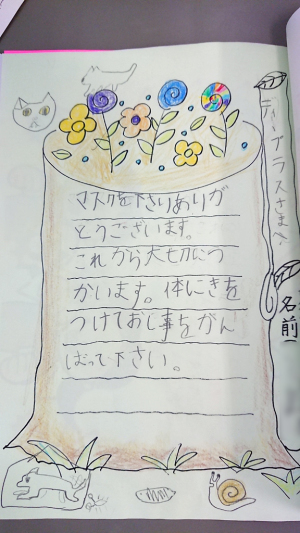 ティープラスさまへ
マスクを下さりありが
とうございます。
これから大切につ
かいます。体にきを
つけておし事をがん
ばって下さい。
名前